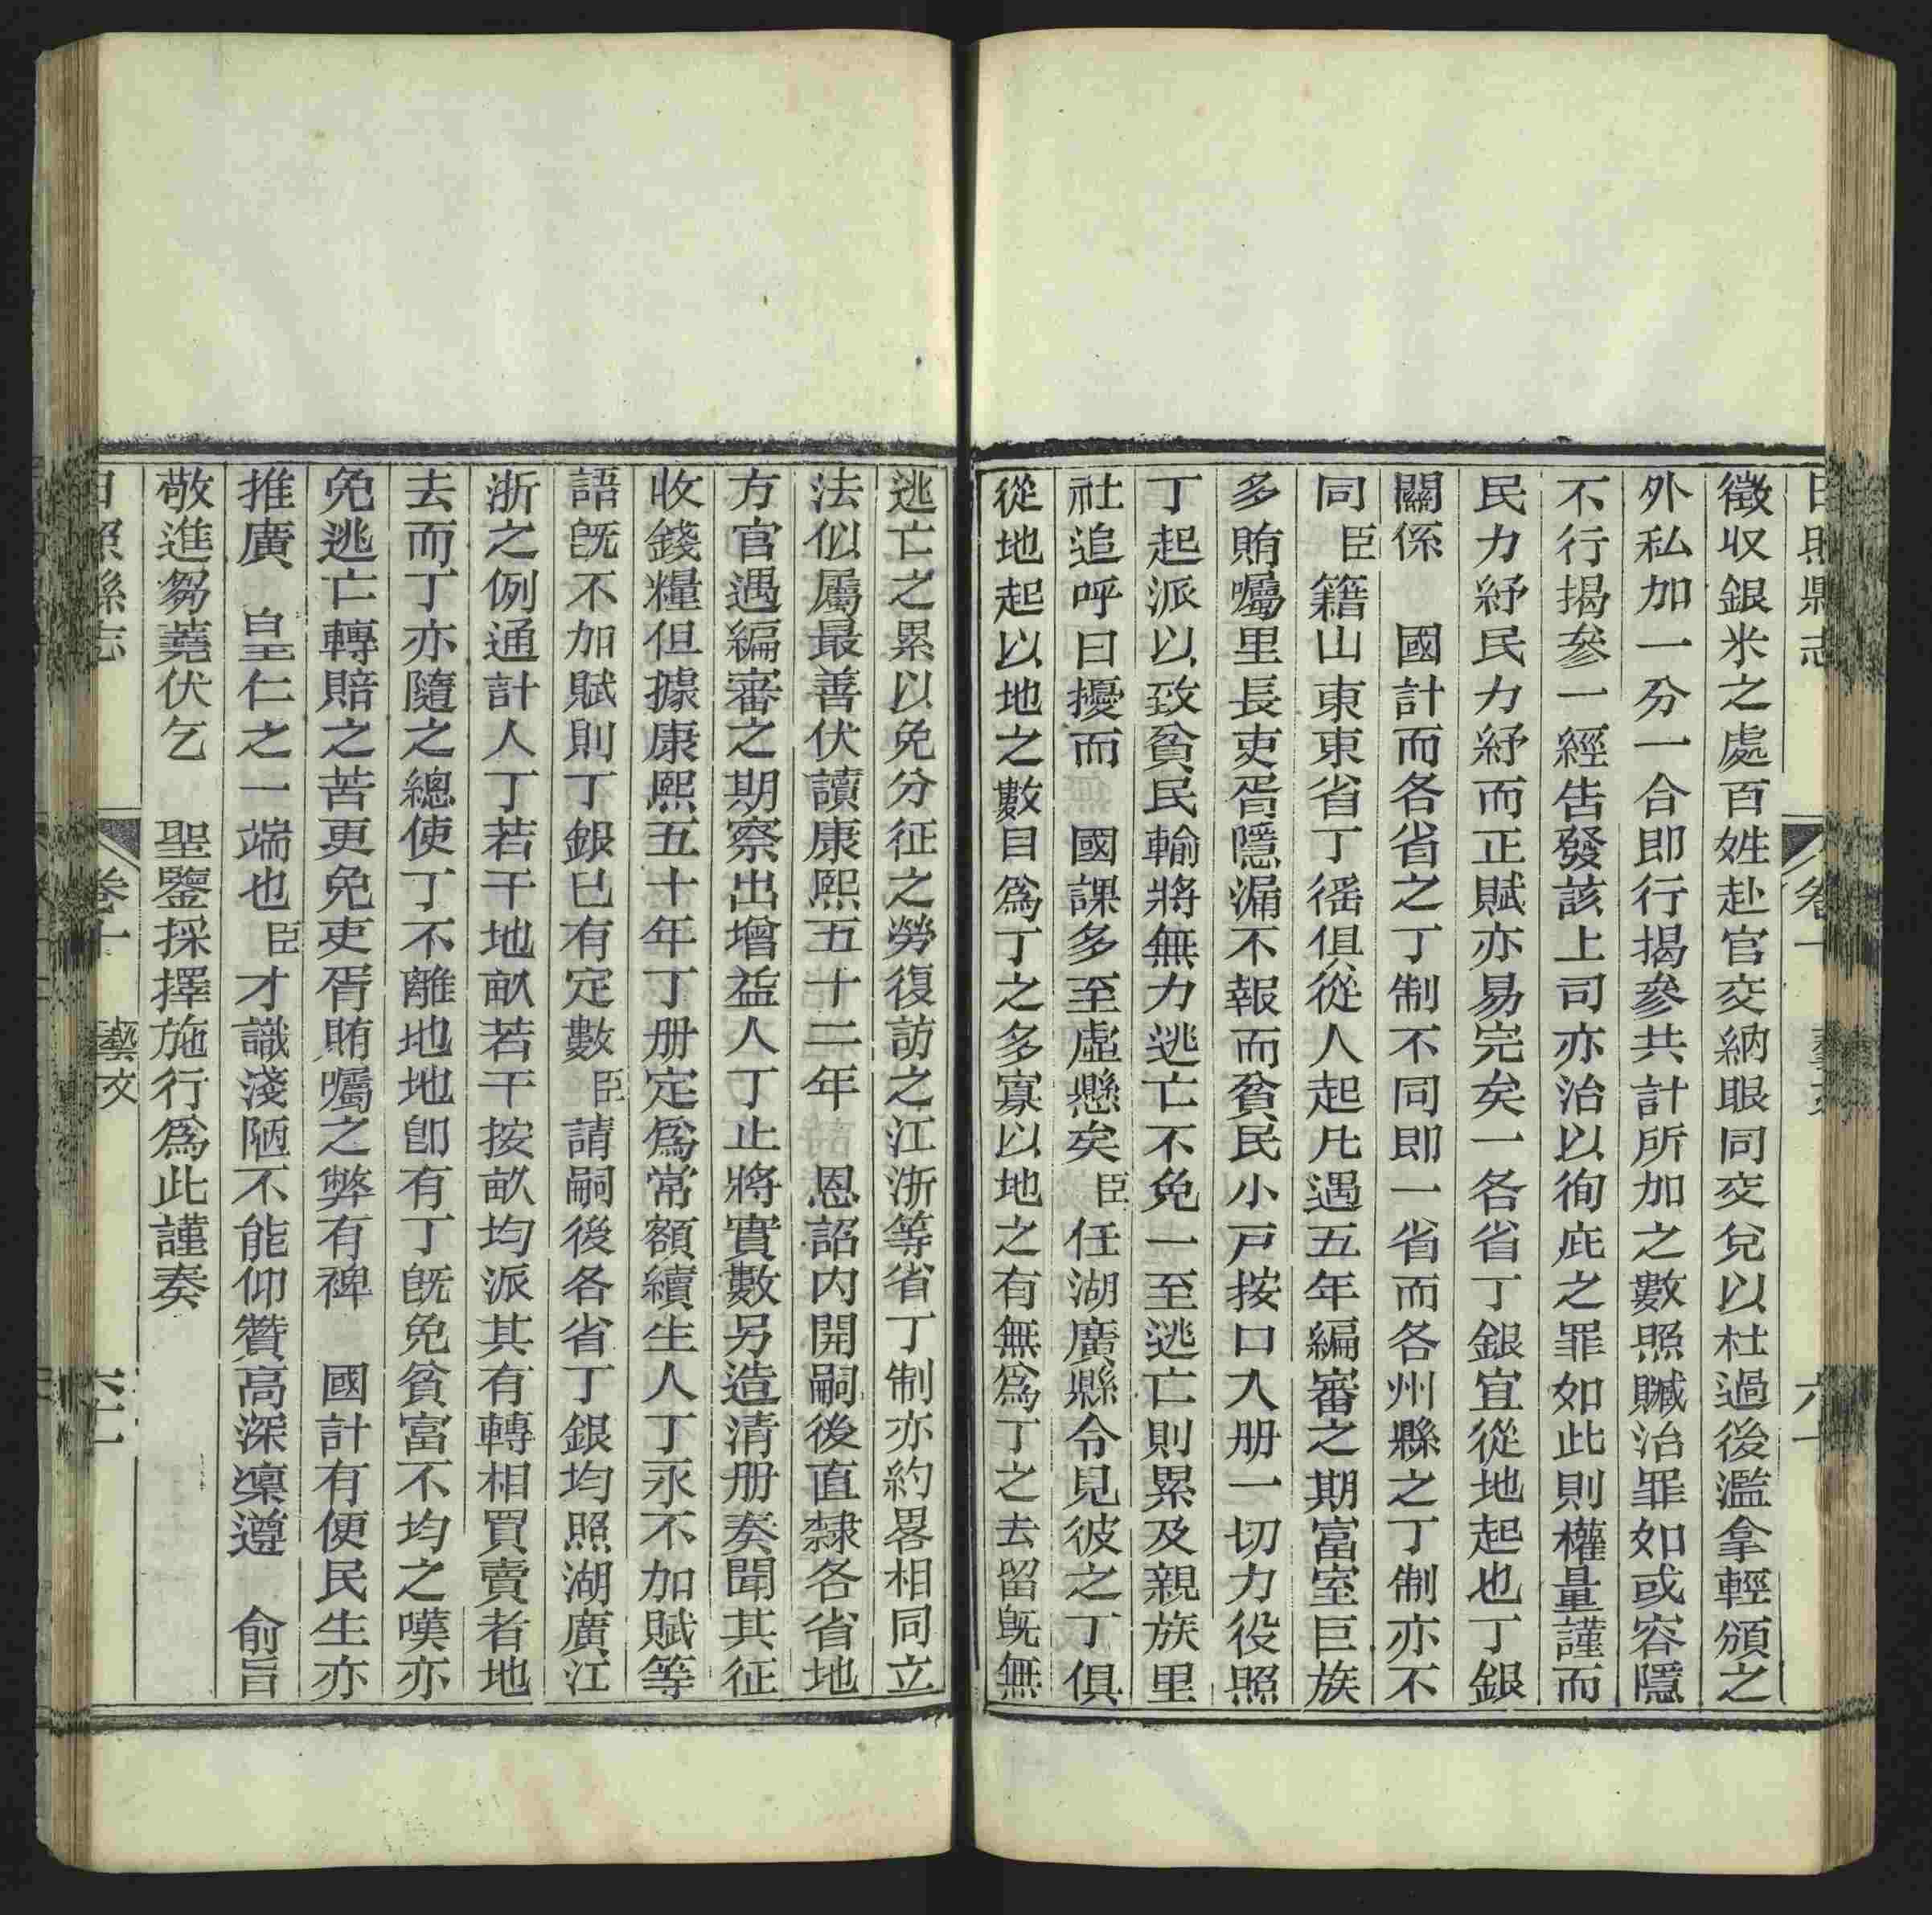 日照縣志 卷十
徵收銀米之處百姓赴官交納眼同交兌以杜過後濫拿輕頒之
外私加一分一合即行揭參共計所加之數照贓治罪如或容隱
不行揭參一經告發該上司亦治以徇庇之罪如此則權量謹而
民力紓民力紓而正賦亦易完矣一各省丁銀宜從地起也丁銀
關係　國計而各省之丁制不同即一省而各州縣之丁制亦不
同臣籍山東東省丁徭俱從人起凡遇五年編審之期富室巨族
多賄囑里長吏胥隱漏不報而貧民小戸按口入册一切力役照
丁起派以致貧民輸將無力逃亡不免一至逃亡則累及親族里
社追呼日擾而　國課多至虛懸矣臣任湖廣縣令見彼之丁俱
從地起以地之數目爲丁之多寡以地之有無爲丁之去留旣無
逃亡之累以免分征之勞復訪之江浙等省丁制亦約畧相同立
法似屬最善伏讀康熙五十二年　恩詔内開嗣後直隸各省地
方官遇編審之期察出增益人丁止將實數另造清册奏聞其征
收錢糧但據康熙五十年丁册定爲常額續生人丁永不加賦等
語旣不加賦則丁銀已有定數臣請嗣後各省丁銀均照湖廣江
浙之例通計人丁若干地畝若干按畝均派其有轉相買賣者地
去而丁亦隨之總使丁不離地地卽有丁旣免貧富不均之嘆亦
免逃亡轉賠之苦更免吏胥賄囑之弊有裨　國計有便民生亦
推廣　皇仁之一端也臣才識淺陋不能仰贊高深凜遵　俞旨
敬進芻蕘伏乞　聖鑒採擇施行爲此謹奏
日照縣志 卷十 藝文